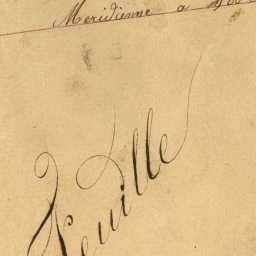 Meridienne a
Feuille